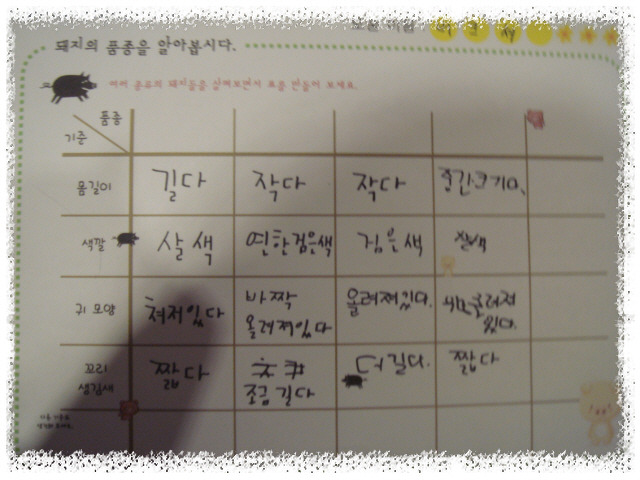 돼지의 품종을 알아봅시다.
여러 종류의 돼지들을 살펴보면서 표를 만들어 보세요.
품종
기준
몸길이 길다 작다 작다 중간크기다.
색깔 살색 연한검은색 검은색 살색
귀 모양 쳐저있다 바짝 올려져있다. 올려져
올려져있다 있다.
꼬리 짧다 더 길다. 짧다
생김새 조금 길다